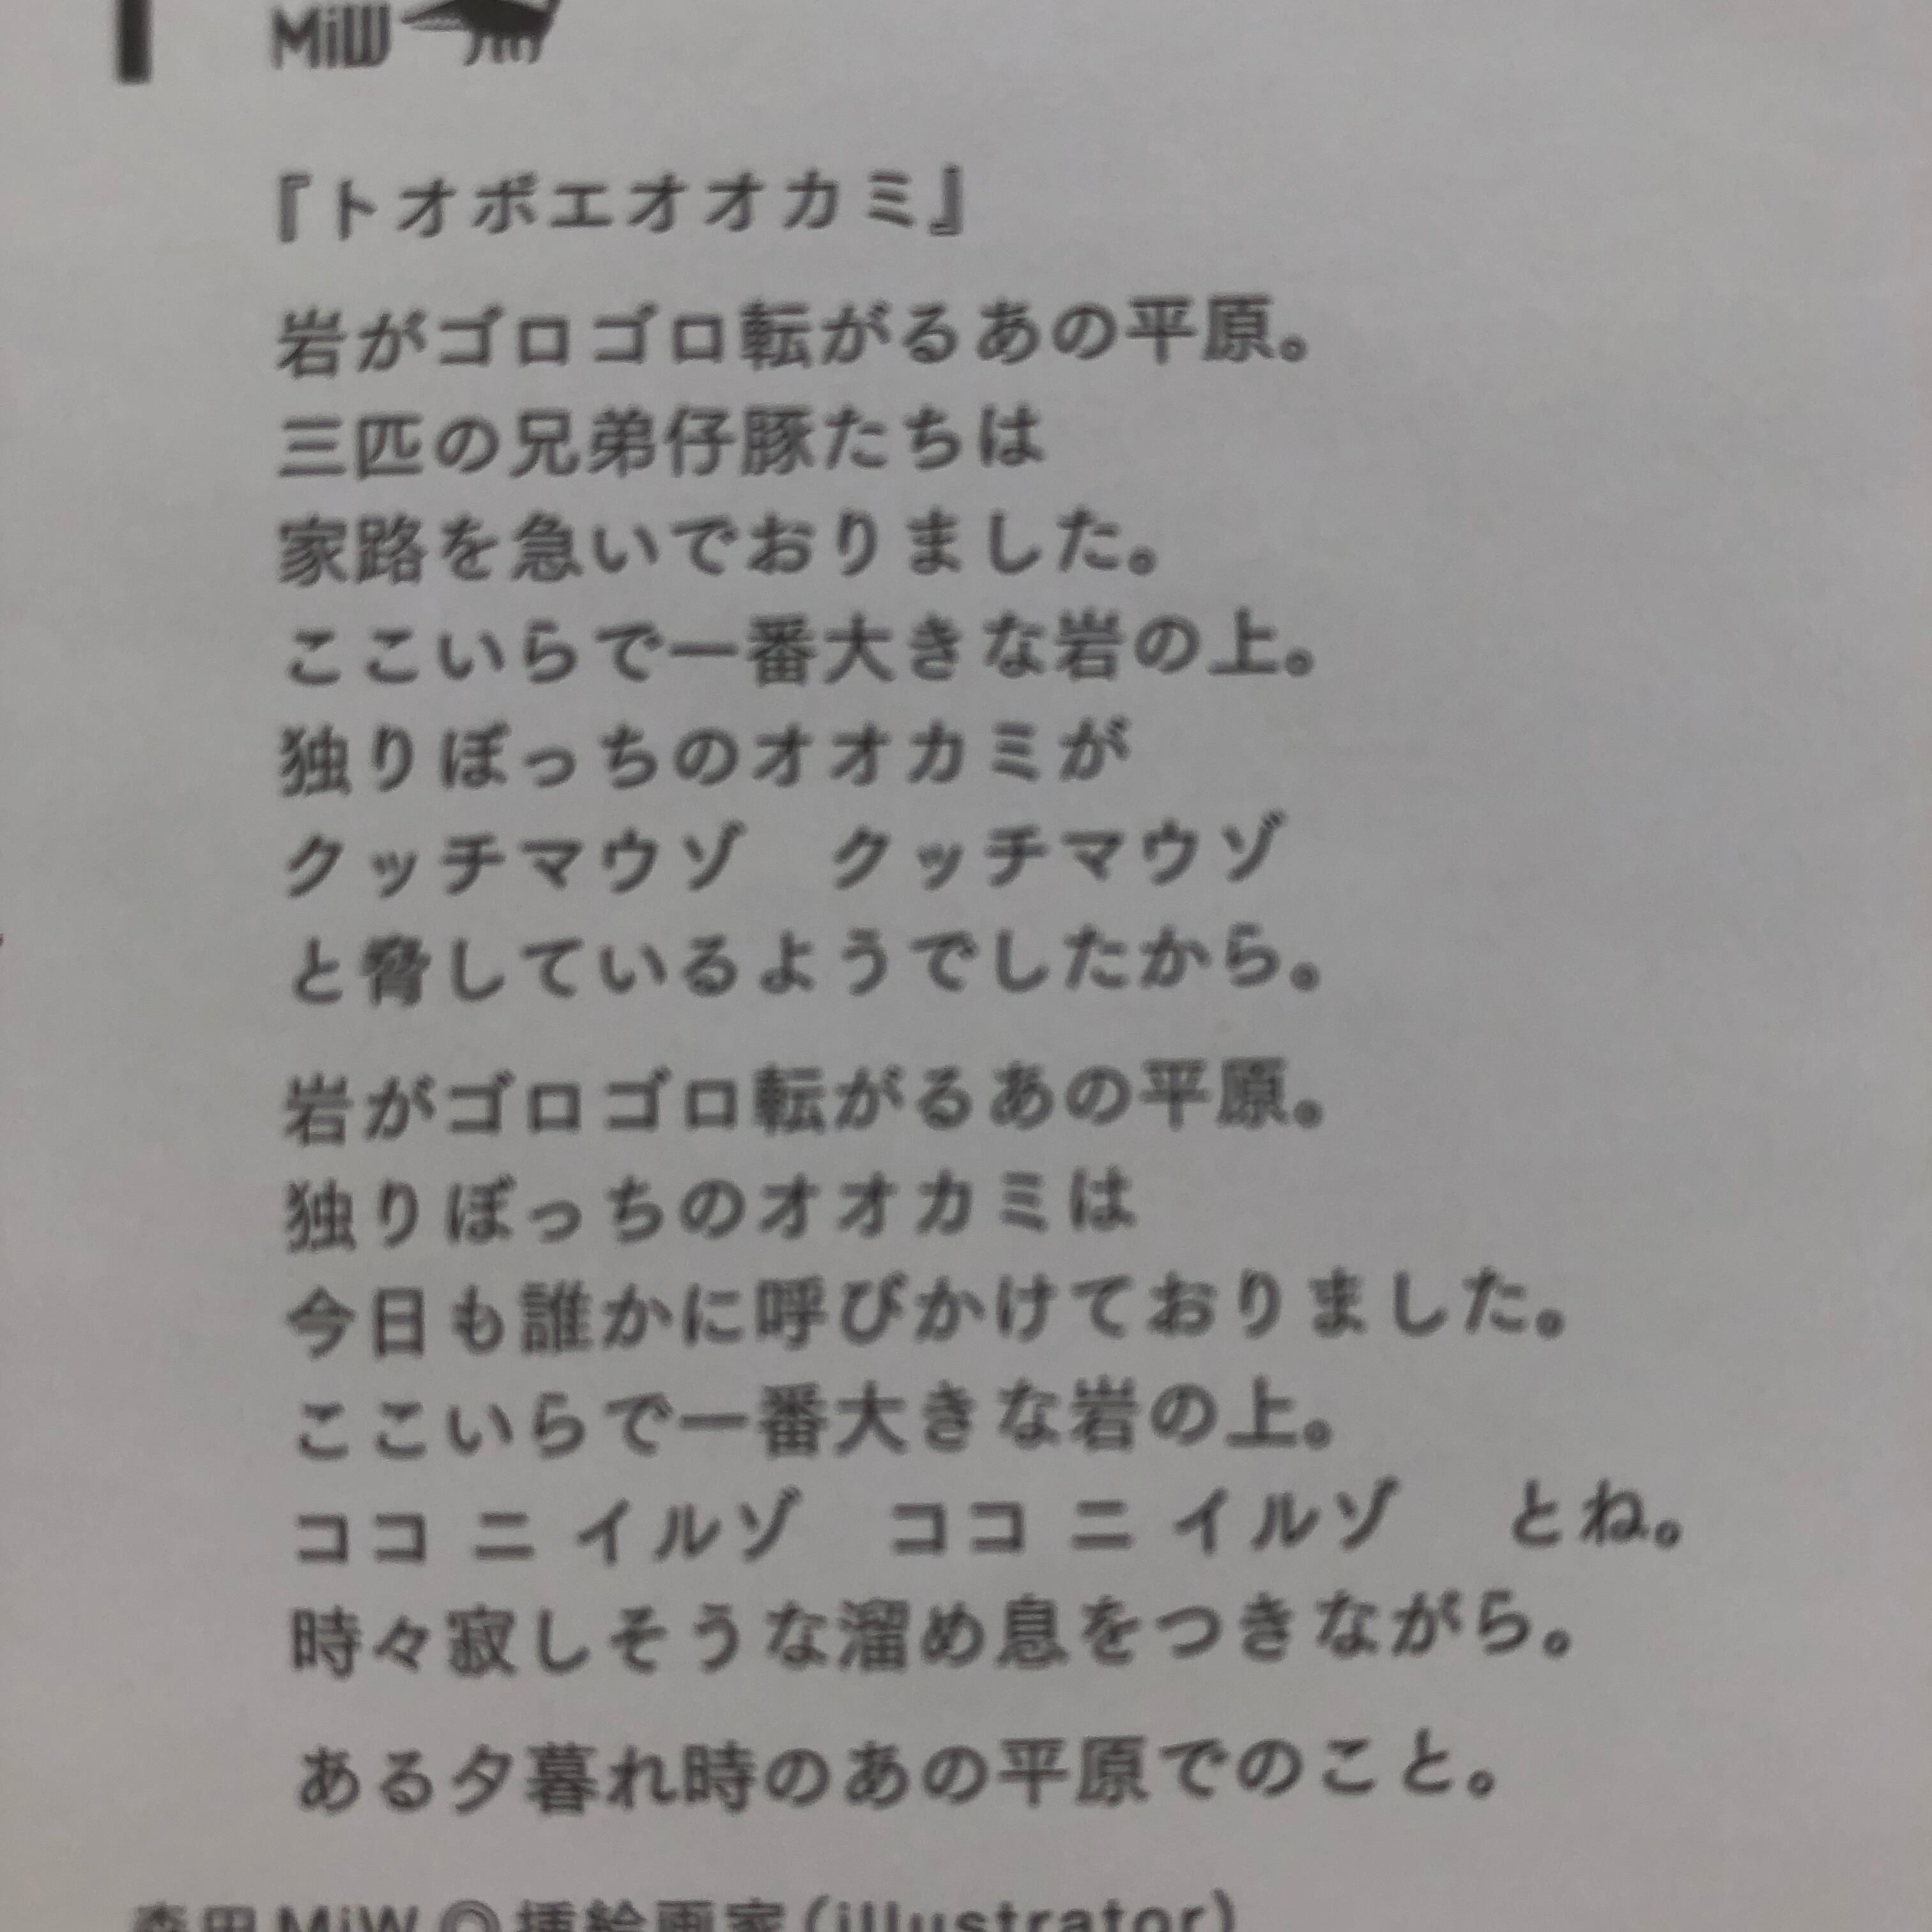 MiW
『トオボエオオカミ』
岩がゴロゴロ転がるあの平原。
三匹の兄弟仔豚たちは
家路を急いでおりました。
ここいらで一番大きな岩の上。
独りぼっちのオオカミが
クッチマウゾ　クッチマウゾ
と脅しているようでしたから。
岩がゴロゴロ転がるあの平原。
独りぼっちのオオカミは
今日も誰かに呼びかけておりました。
ここいらで一番大きな岩の上。
ココ ニ イルゾ　ココ ニ イルゾ　とね。
時々寂しそうな溜め息をつきながら。
ある夕暮れ時のあの平原でのこと。
森田MiW ◎挿絵画家（illustrator）